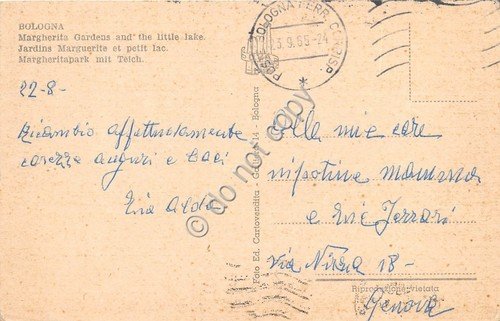 BOLOGNA
Margherita Gardens and the little lake.
Jardins Marguerite et petit lac.
Margheritapark mit Teich.
BOLOGNA FERR. CORRISP.
POSTE
22-8-
Ricambio affettuosamente
carezze auguri e baci
Zia Alda
do not copy
Foto Ed. Cartovendita - 14 - Bologna
Alle mie care
nipotine
e Ferrari
via Nizza 18 -
Riproduzione vietata
Genova